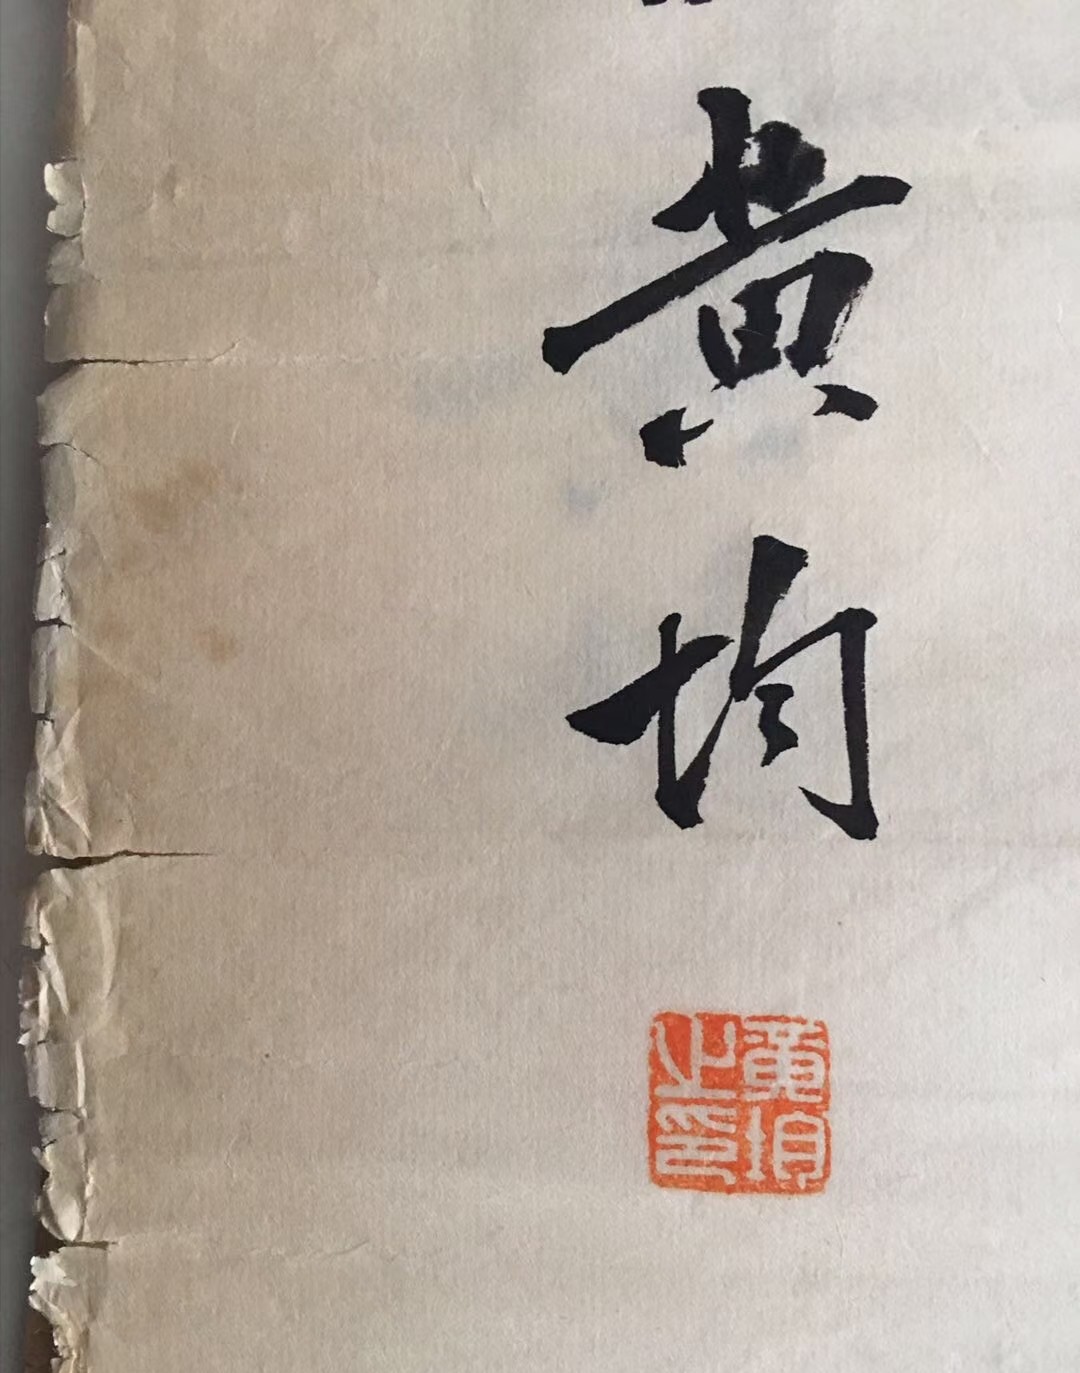 黄均
黄均
之印